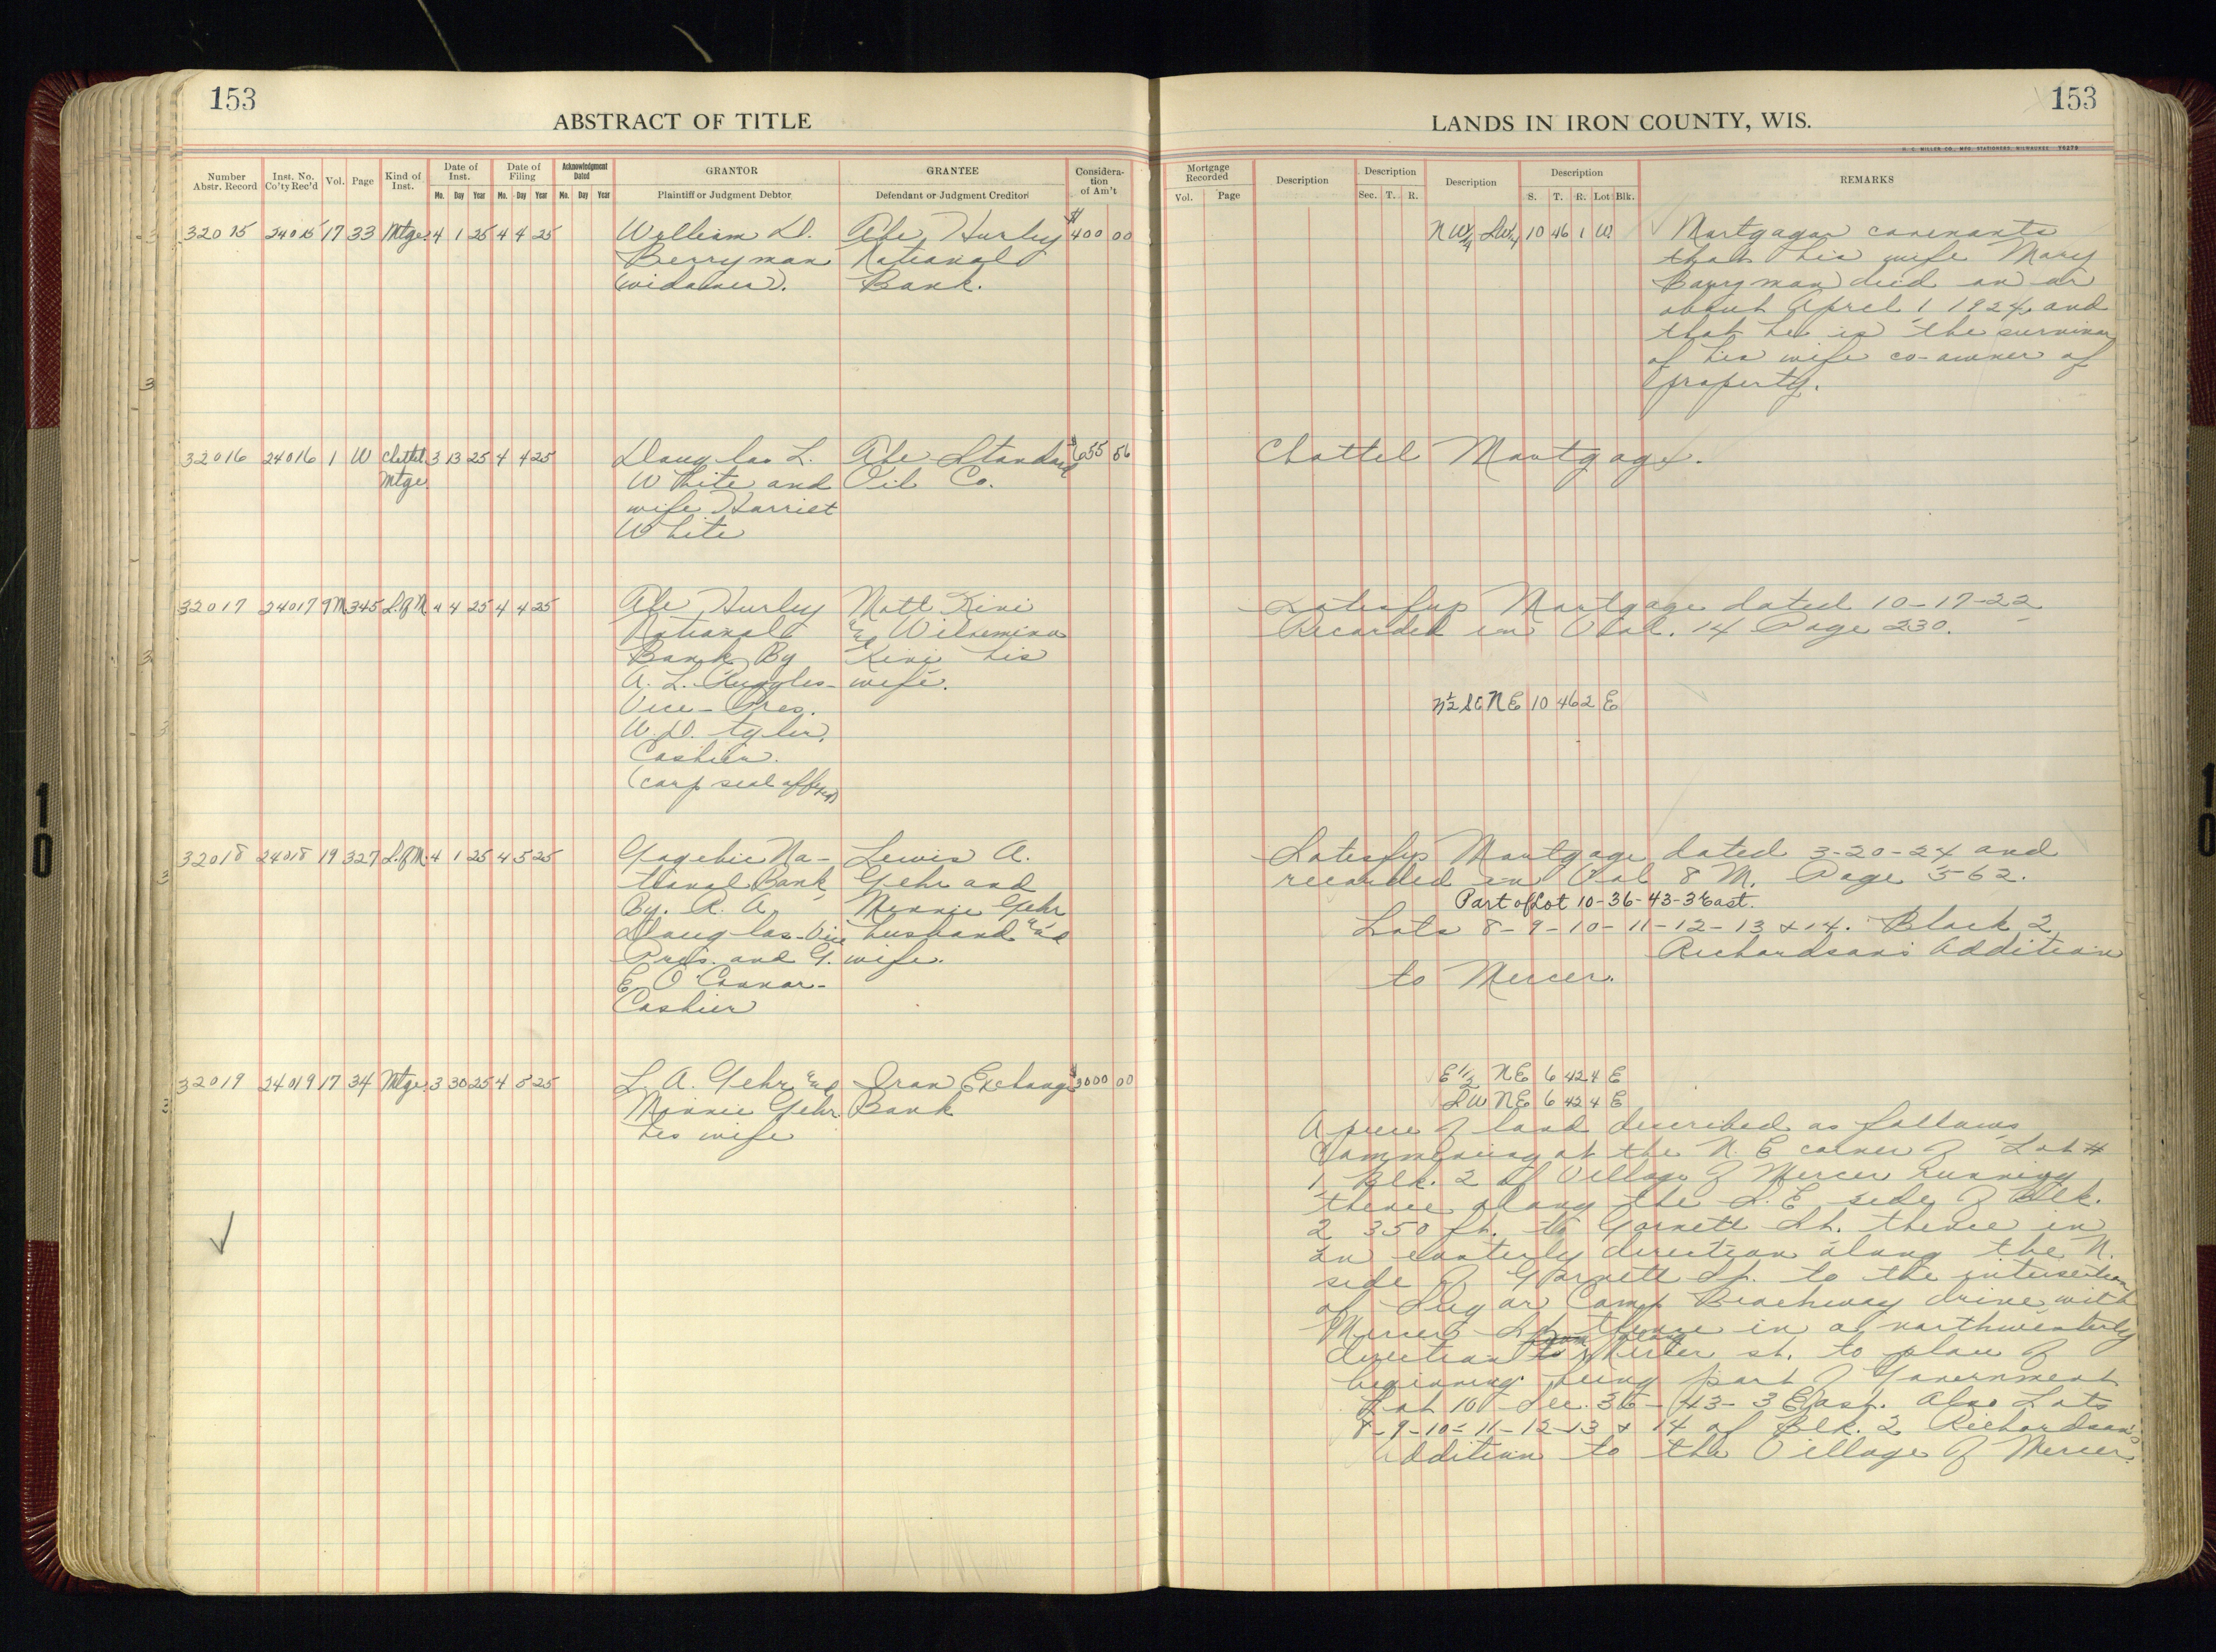 153
ABSTRACT OF TITLE
Number Abstr. Record
Inst. No. Co'ty Rec'd
Vol.
Page
Kind of Inst.
Date of Inst.
Mo. Day Year
Date of Filing
Mo. Day Year
Acknowledgment Dated
Mo. Day Year
GRANTOR
Plaintiff or Judgment Debtor
GRANTEE
Defendant or Judgment Creditor
Considera-
tion
of Am't
32015 24015 17 33 Mtge. 4 1 25 4 4 25 William D. The Hurley $400 00
Berryman National
(widower). Bank.
32016 24016 1 W Chattel. 3 13 25 4 4 25 Douglas L. The Standard $655 56
Mtge. White and Oil Co.
wife Harriet
White
32017 24017 9M 345 S.of M 4 4 25 4 4 25 The Hurley Matt Kivi
National and Wilhemina
Bank By Kivi his
A. L. Ruggles- wife.
Vice-Pres.
W. D. Tyler,
Cashier.
(corp seal affixed)
32018 24018 19 327 S.of M. 4 1 25 4 5 25 Gogebic Na- Lewis A.
tional Bank Gehr and
By. R. A. Minnie Gehr
Douglas-Vice husband and
Pres. and G. wife.
E O'Connor-
Cashier
32019 24019 17 34 Mtge. 3 30 25 4 5 25 L. A. Gehr and Iron Exchange $3000 00
Minnie Gehr Bank
his wife
153
LANDS IN IRON COUNTY, WIS.
H. C. MILLER CO., MFG. STATIONERS, MILWAUKEE 76279
Mortgage Recorded
Vol. Page
Description
Description
Sec. T. R.
Description
Description
S. T. R. Lot Blk.
REMARKS
NW¼ SW¼ 10 46 1 W. Mortgagor covenants
that his wife Mary
Berryman died on or
about April 1, 1924, and
that he is the survivor
of his wife co-owner of
property.
Chattel Mortgage.
Satisfys Mortgage dated 10-17-22
Recorded in Vol. 14 Page 230.
N½ SE NE 10 46 2 E
Satisfys Mortgage dated 3-20-24 and
recorded in Vol 8 M. Page 562.
Part of Lot 10-36-43-3 East.
Lots 8-9-10-11-12-13 & 14. Block 2
Richardson's Addition
to Mercer.
E½ NE 6 42 4 E
SW NE 6 42 4 E
A piece of land described as follows
Commencing at the N. E corner of Lot #
1 Blk. 2 of Village of Mercer running
thence along the S. E side of Blk.
2 350 ft. to Garnett St. thence in
an easterly direction along the N.
side of Garnett St. to the intersection
of Sugar Camp Beachway drive with
Mercer St. thence in a northwesterly
direction along Mercer st. to place of
beginning being part of Government
Lot 10 - Sec. 36 - 43 - 3 East. Also Lots
8-9-10-11-12-13 & 14 of Blk. 2 Richardson's
Addition to the Village of Mercer.